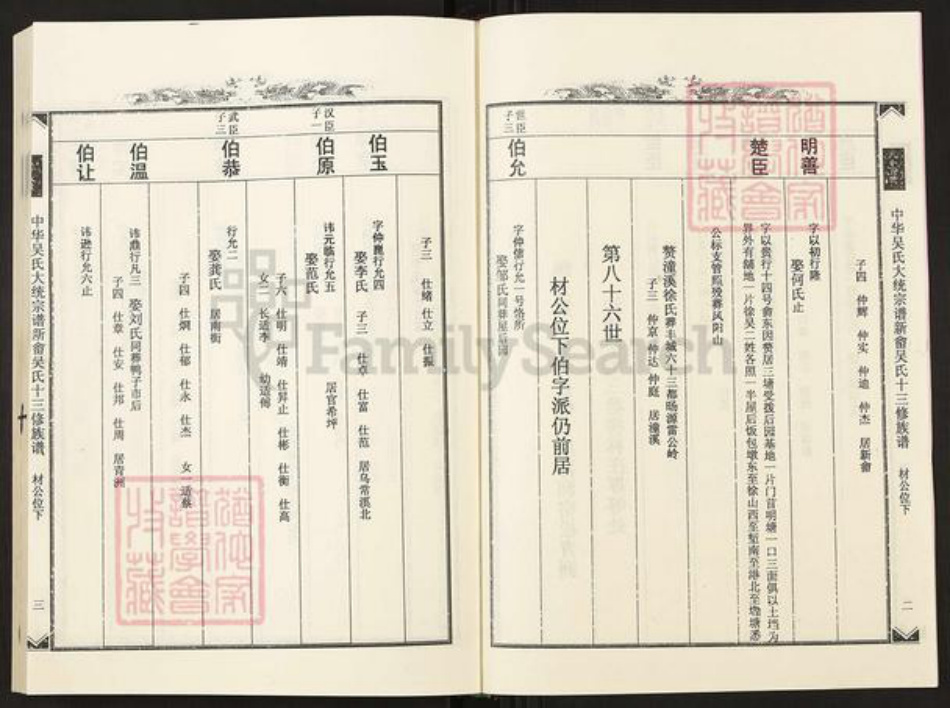 中华吴氏大统宗谱新畲吴氏十三修族谱 材公位下 二
子四 仲辉 仲实 仲逾 仲杰 居新畲
明善
字以初行隆
娶何氏止
楚臣
字以贵行十四号畲东因赘居三塘受拨后园基地一片门首明塘一口三面俱以土垱为
界外有铺地一片徐吴二姓各照一半屋后饭包墩东至徐山西至堑南至港北至塘悉
公标支管照殁葬凤阳山
赘潼溪徐氏葬丰城六十三都旸源雷公岭
子三 仲京 仲达 仲庭 居潼溪
第八十六世
材公位下伯字派仍前居
世臣子三
伯允
字仲儒行允一号恪所
娶邹氏同葬屋后园
中华吴氏大统宗谱新畲吴氏十三修族谱 材公位下 三
子三 仕绪 仕立 仕振
伯玉
字仲崑行允四
娶李氏 子三 仕卓 仕富 仕范 居乌常溪北
汉臣子一
伯原
讳元临行允五
娶范氏 居官希坪
子六 仕明 仕靖 仕昇止 仕彬 仕衡 仕高
女二 长适李 幼适傅
武臣子三
伯恭
行允二
娶龚氏 居南街
子四 仕炯 仕郁 仕永 仕杰 女一适蔡
伯温
讳鼎行凡三 娶刘氏同葬鸭子市后
子四 仕章 仕安 仕邦 仕周 居青洲
伯让
讳逊行允六止
FamilySearch